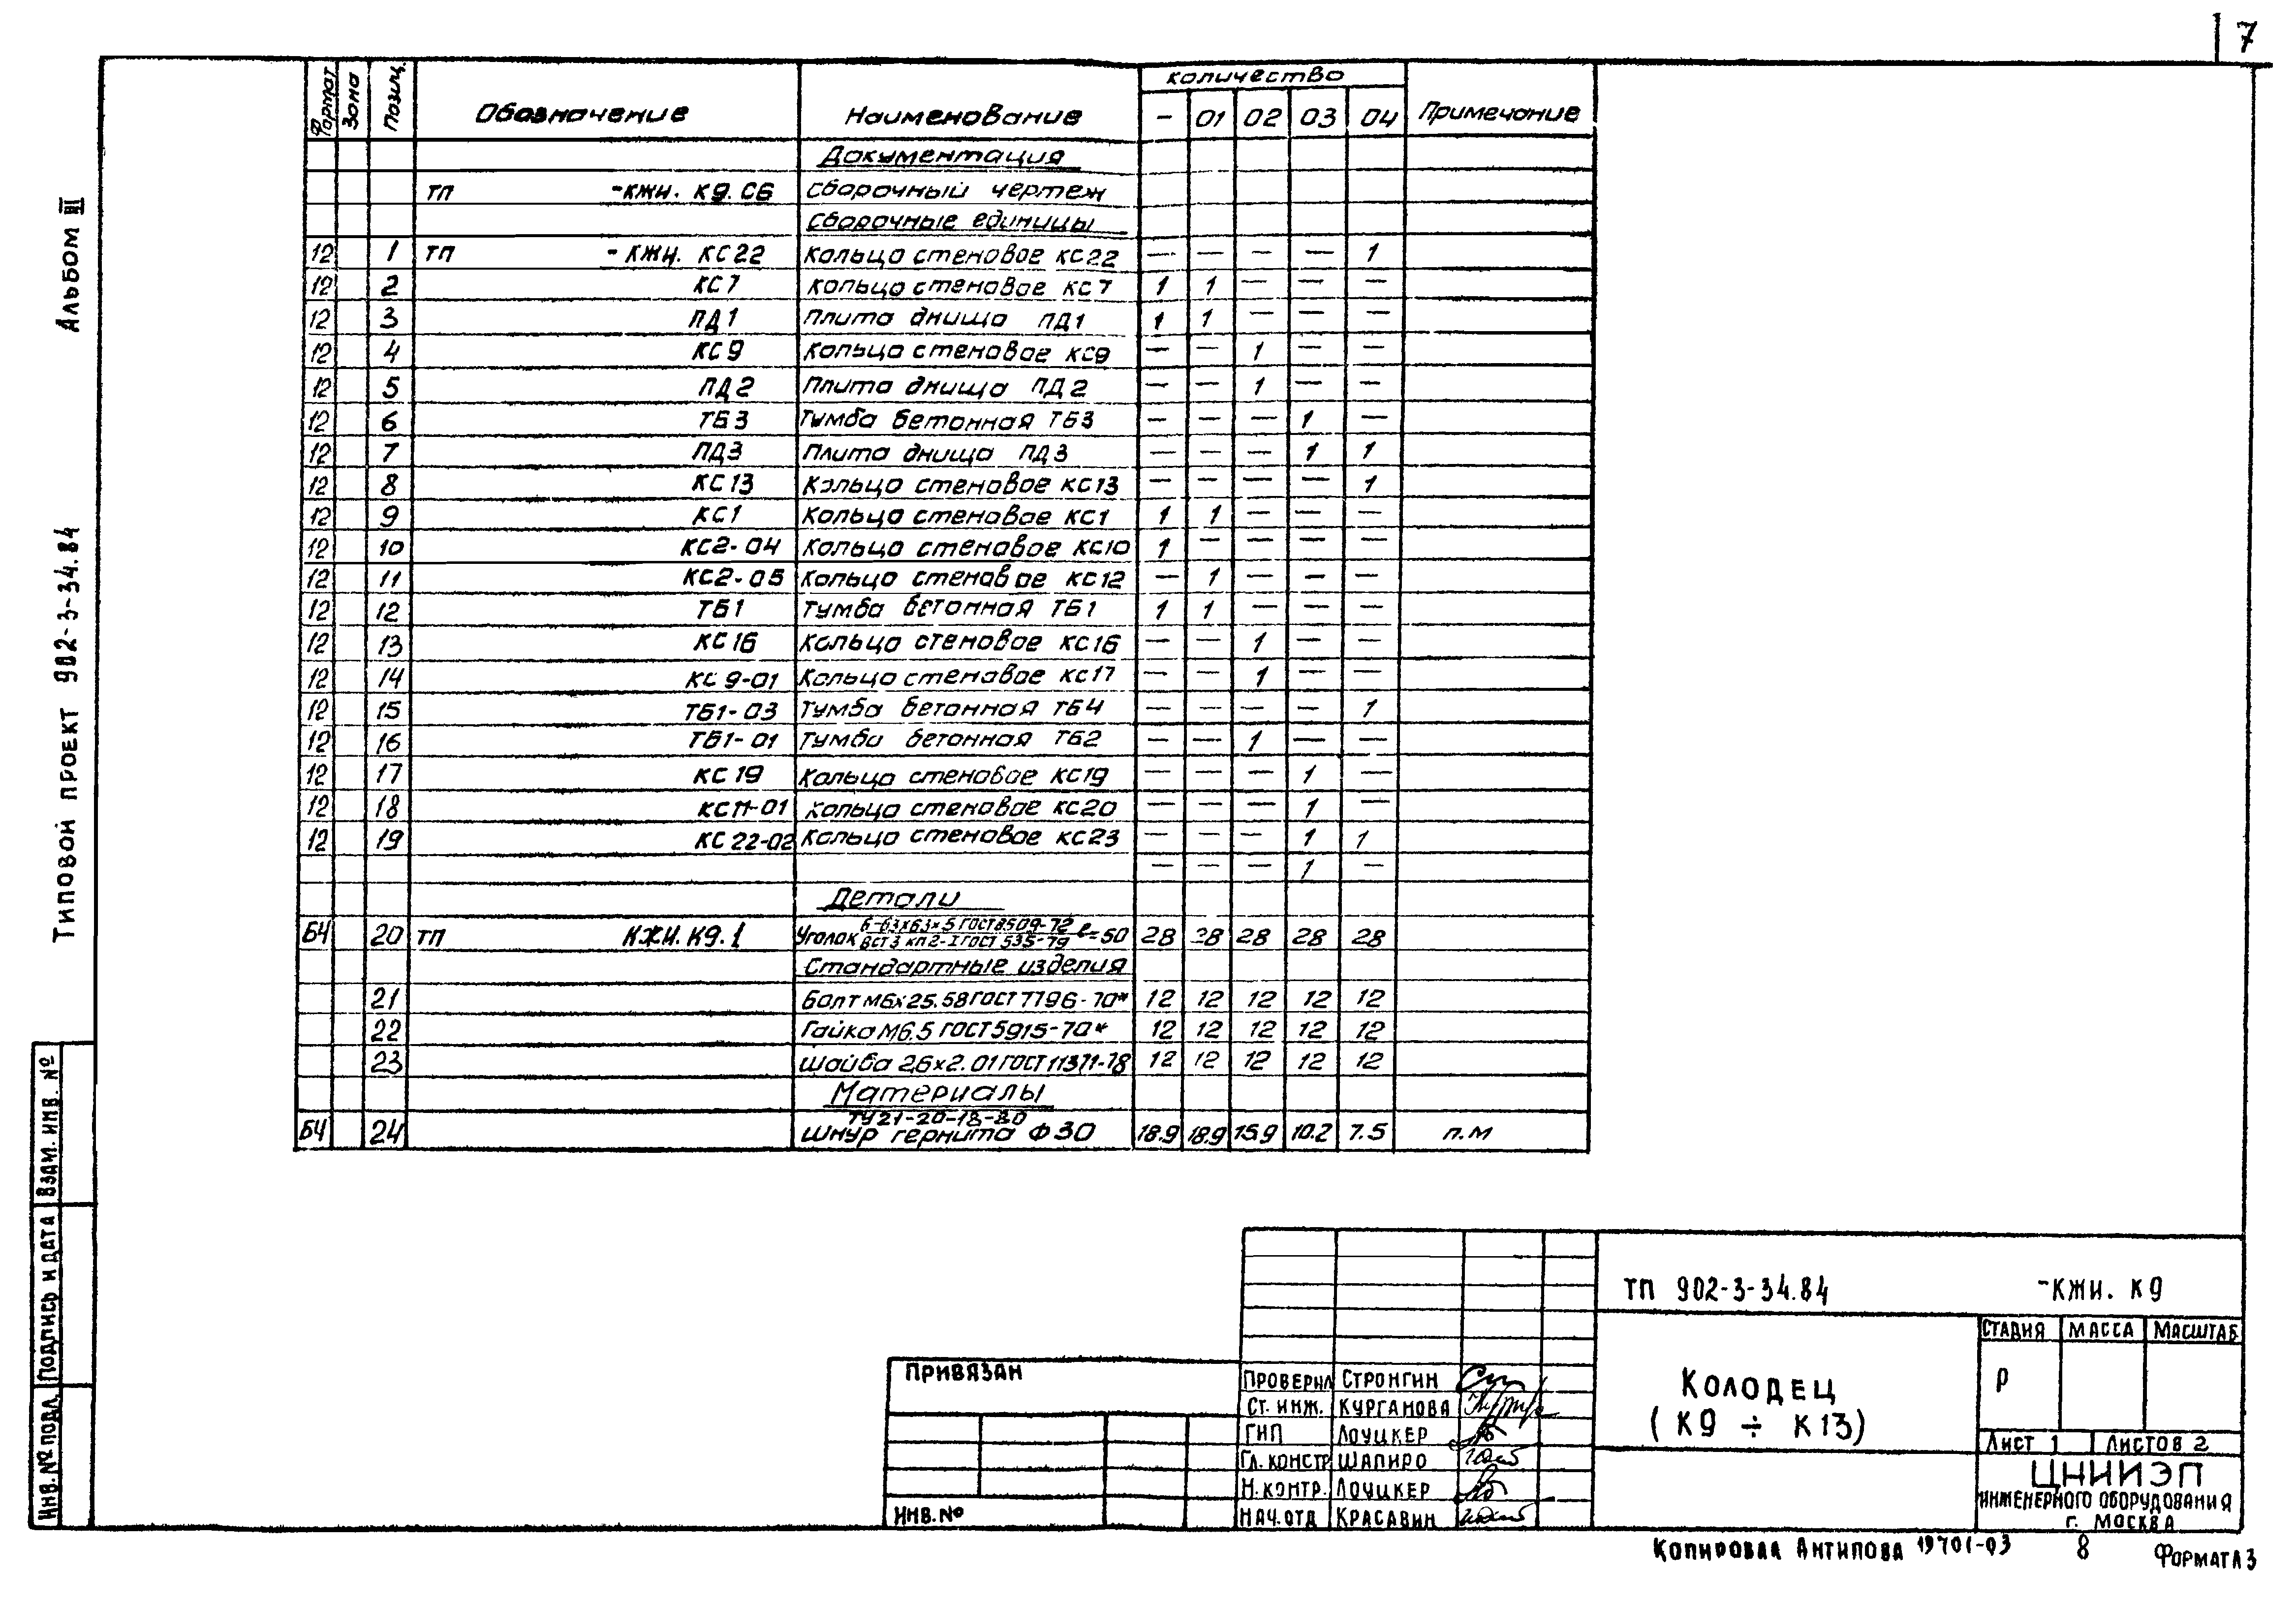 7
Альбом III
Типовой проект 902-3-34.84
Формат Зона Позиц. Обозначение Наименование количество Примечание
– 01 02 03 04
Документация
ТП -КЖИ. К9. СБ Сборочный чертеж
Сборочные единицы
12 1 ТП - КЖИ. КС22 Кольцо стеновое КС22 — — — — 1
12 2 КС7 Кольцо стеновое КС7 1 1 — — —
12 3 ПД1 Плита днища ПД1 1 1 — — —
12 4 КС9 Кольцо стеновое КС9 — — 1 — —
12 5 ПД2 Плита днища ПД2 — — 1 — —
12 6 ТБ3 Тумба бетонная ТБ3 — — — 1 —
12 7 ПД3 Плита днища ПД3 — — — 1 1
12 8 КС13 Кольцо стеновое КС13 — — — — 1
12 9 КС1 Кольцо стеновое КС1 1 1 — — —
12 10 КС2-04 Кольцо стеновое КС10 1 — — — —
12 11 КС2-05 Кольцо стеновое КС12 — 1 — — —
12 12 ТБ1 Тумба бетонная ТБ1 1 1 — — —
12 13 КС16 Кольцо стеновое КС16 — — 1 — —
12 14 КС9-01 Кольцо стеновое КС17 — — 1 — —
12 15 ТБ1-03 Тумба бетонная ТБ4 — — — — 1
12 16 ТБ1-01 Тумба бетонная ТБ2 — — 1 — —
12 17 КС19 Кольцо стеновое КС19 — — — 1 —
12 18 КС11-01 Кольцо стеновое КС20 — — — 1 —
12 19 КС22-02 Кольцо стеновое КС23 — — — 1 1
— — — 1 —
Детали
БЧ 20 ТП КЖИ. К9.1 Уголок Б-63х63х5 ГОСТ 8509-72 / ВСт3 кп2-I ГОСТ 535-79 ℓ=50 28 28 28 28 28
Стандартные изделия
21 Болт М6х25.58 ГОСТ 7796-70* 12 12 12 12 12
22 Гайка М6.5 ГОСТ 5915-70* 12 12 12 12 12
23 Шайба 2.6х2.01 ГОСТ 11371-78 12 12 12 12 12
Материалы
ТУ21-20-18-80
БЧ 24 Шнур гернита Ф30 18.9 18.9 15.9 10.2 7.5 п.м
Взам. инв. №
Подпись и дата
Инв. № подл.
ТП 902-3-34.84 -КЖИ. К9
Стадия Масса Масштаб
Р
Колодец
(К9 ÷ К13)
Лист 1 Листов 2
ЦНИИЭП
инженерного оборудования
г. Москва
Привязан
Инв. №
Проверил Стронгин
Ст. инж. Курганова
ГИП Лоуцкер
Гл. констр. Шапиро
Н. контр. Лоуцкер
Нач. отд Красавин
Копировал Антипова 19701-03 8 Формат А3